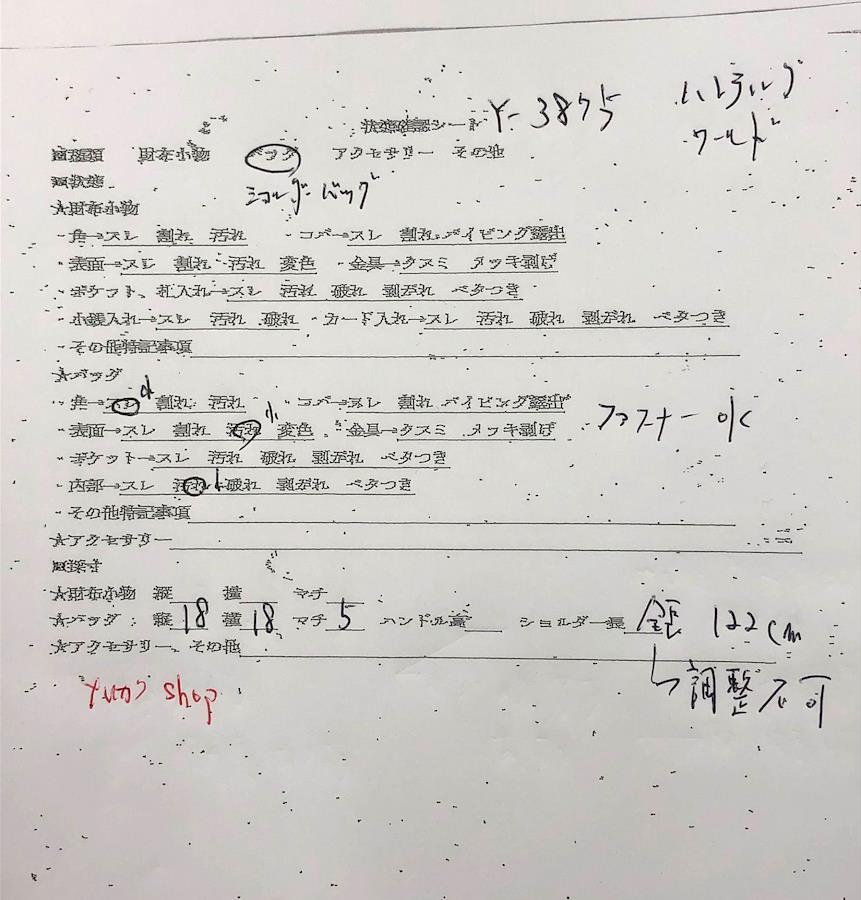 状態確認シート Y-3875 ハンティングワールド
■種類 財布小物 バッグ アクセサリー その他
■状態 ショルダーバッグ
★財布小物
・角→スレ 割れ 汚れ ・コバ→スレ 割れ パイピング露出
・表面→スレ 割れ 汚れ 変色 ・金具→クスミ メッキ剥げ
・ポケット、札入れ→スレ 汚れ 破れ 剥がれ ベタつき
・小銭入れ→スレ 汚れ 破れ ・カード入れ→スレ 汚れ 破れ 剥がれ ベタつき
・その他特記事項
★バッグ
・角→スレ 小 割れ 汚れ ・コバ→スレ 割れ パイピング露出
・表面→スレ 割れ 汚れ 小 変色 ・金具→クスミ メッキ剥げ ファスナー OK
・ポケット→スレ 汚れ 破れ 剥がれ ベタつき
・内部→スレ 汚れ 破れ 剥がれ ベタつき
・その他特記事項
★アクセサリー
■採寸
★財布小物 縦 横 マチ
★バッグ : 縦 18 横 18 マチ 5 ハンドル高 ショルダー長 全長 122cm
★アクセサリー、その他
↳調整不可
shop